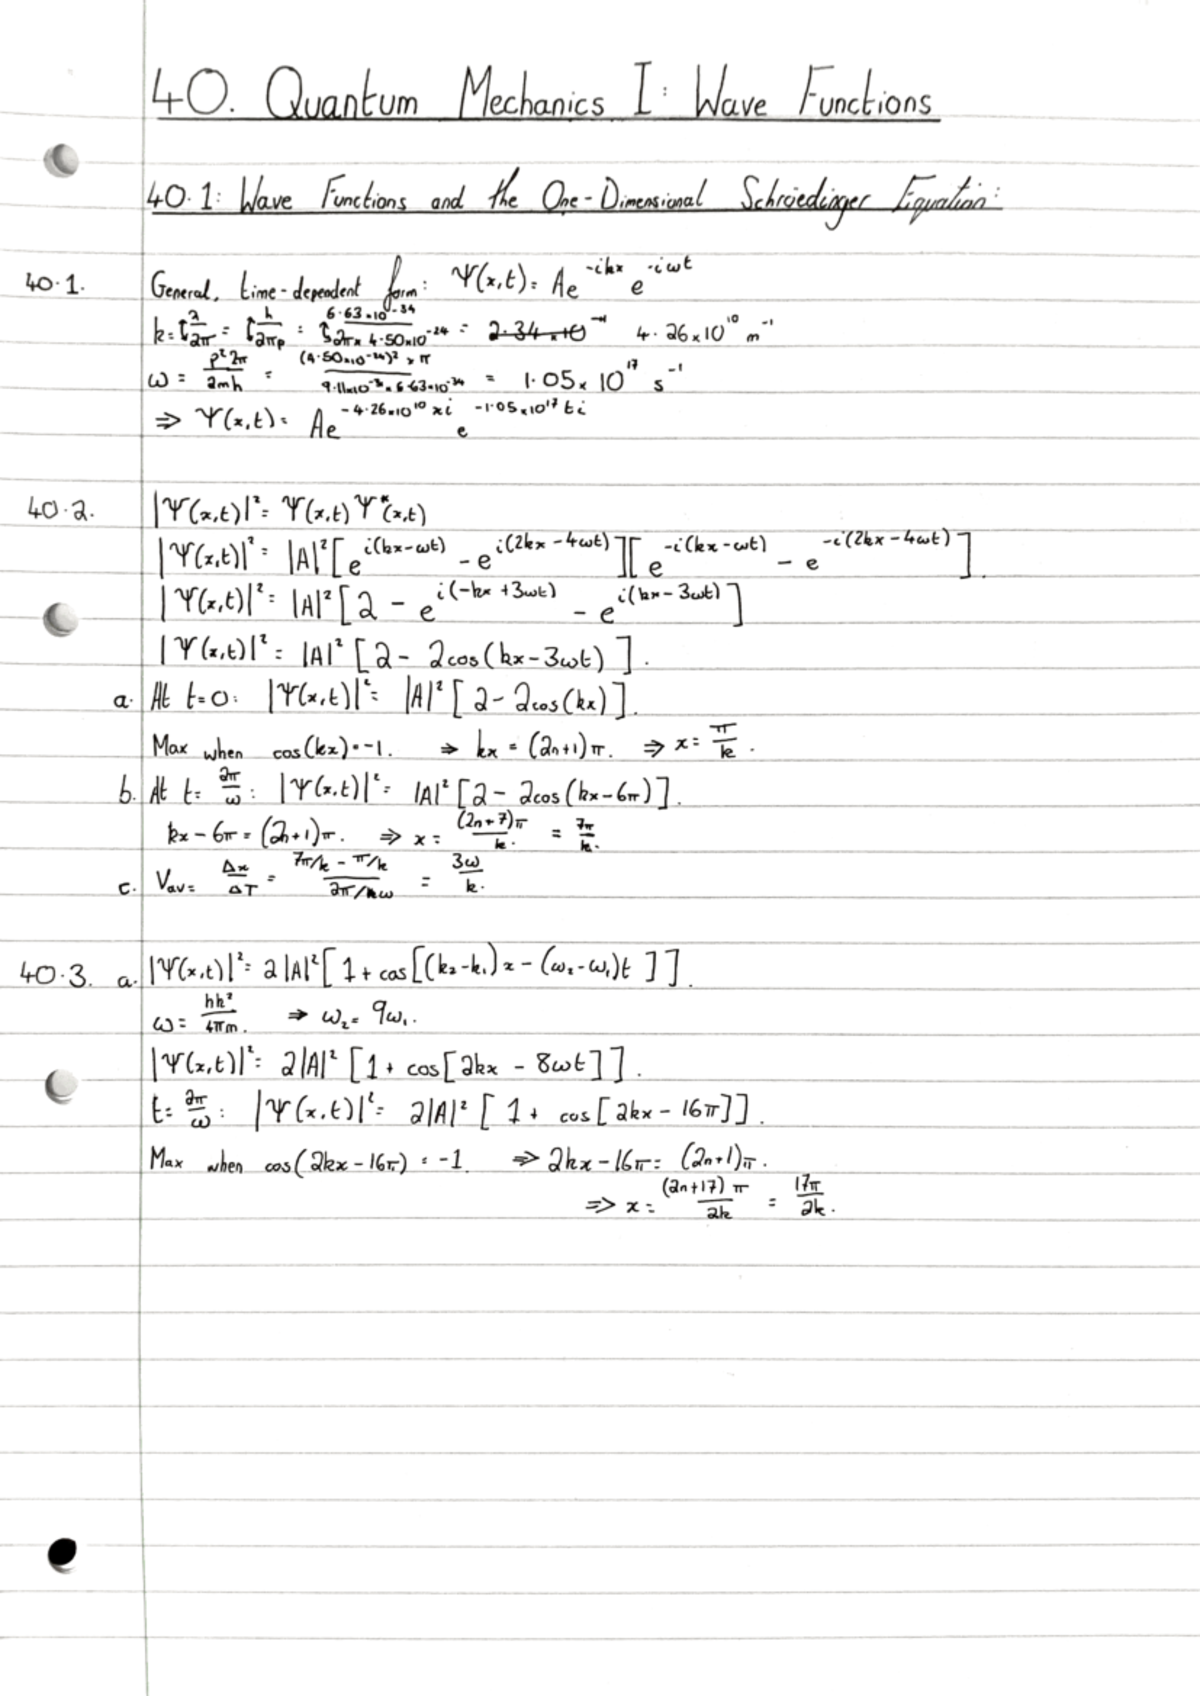 40. Quantum Mechanics I: Wave Functions
40.1: Wave Functions and the One-Dimensional Schröedinger Equation:
40.1. General, time-dependent form: Ψ(x,t) = Ae^(-ikx) e^(-iωt)
k = λ/2π = h/2πp = 6.63×10^-34 / 2π × 4.50×10^-24 = 2.34×10^-11 4.26×10^10 m^-1
ω = p²2π/2mh = (4.50×10^-24)² × π / 9.11×10^-31 × 6.63×10^-34 = 1.05×10^17 s^-1
⇒ Ψ(x,t) = Ae^(-4.26×10^10 xi) e^(-1.05×10^17 ti)
40.2. |Ψ(x,t)|² = Ψ(x,t)Ψ*(x,t)
|Ψ(x,t)|² = |A|²[e^(i(kx-ωt)) - e^(i(2kx-4ωt))][e^(-i(kx-ωt)) - e^(-i(2kx-4ωt))].
|Ψ(x,t)|² = |A|²[2 - e^(i(-kx+3ωt)) - e^(i(kx-3ωt))]
|Ψ(x,t)|² = |A|²[2 - 2cos(kx-3ωt)].
a. At t=0: |Ψ(x,t)|² = |A|²[2 - 2cos(kx)].
Max when cos(kx) = -1. ⇒ kx = (2n+1)π. ⇒ x = π/k.
b. At t = 2π/ω: |Ψ(x,t)|² = |A|²[2 - 2cos(kx-6π)].
kx - 6π = (2n+1)π. ⇒ x = (2n+7)π/k. = 7π/k.
c. Vav = Δx/ΔT = 7π/k - π/k / 2π/ω = 3ω/k.
40.3. a. |Ψ(x,t)|² = 2|A|²[1 + cos[(k₂-k₁)x - (ω₂-ω₁)t]].
ω = hk²/4πm. ⇒ ω₂ = 9ω₁.
|Ψ(x,t)|² = 2|A|²[1 + cos[2kx - 8ωt]].
t = 2π/ω: |Ψ(x,t)|² = 2|A|²[1 + cos[2kx - 16π]].
Max when cos(2kx-16π) = -1. ⇒ 2kx - 16π = (2n+1)π.
⇒ x = (2n+17)π/2k = 17π/2k.